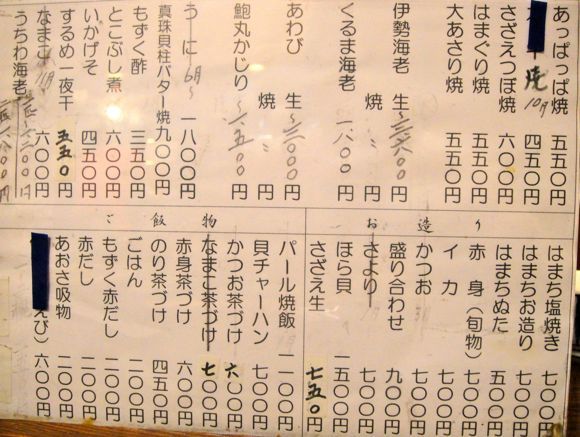 あっぱっぱ焼 五五〇円
焼 10月 四五〇円
さざえつぼ焼 六〇〇円
はまぐり焼 五五〇円
大あさり焼 五五〇円
伊勢海老 生〜
くるま海老 焼 〃 円
一、八〇〇円
あわび 生〜三〇〇〇円
焼 〃 円
鮑丸かじり〜一五〇〇円
うに 6月〜 一八〇〇円
真珠貝柱バター焼 九〇〇円
もずく酢 三五〇円
とこぶし煮 六〇〇円
いかげそ 四五〇円
するめ一夜干 五五〇円
なまこ 六〇〇円
うちわ海老
お造り
はまち塩焼き 七〇〇円
はまちお造り 七〇〇円
はまちぬた 五〇〇円
赤身(旬物) 七〇〇円
イカ 七〇〇円
かつお 七〇〇円
盛り合わせ 九〇〇円
さより 七〇〇円
ほら貝 一五〇〇円
さざえ生 七五〇円
ご飯物
パール焼飯 一一〇〇円
貝チャーハン 七〇〇円
かつお茶づけ 六〇〇円
なまこ茶づけ 七〇〇円
赤身茶づけ 六〇〇円
のり茶づけ 四五〇円
ごはん 二〇〇円
もずく赤だし 二〇〇円
赤だし 二〇〇円
あおさ吸物 二〇〇円
えび) 六〇〇円